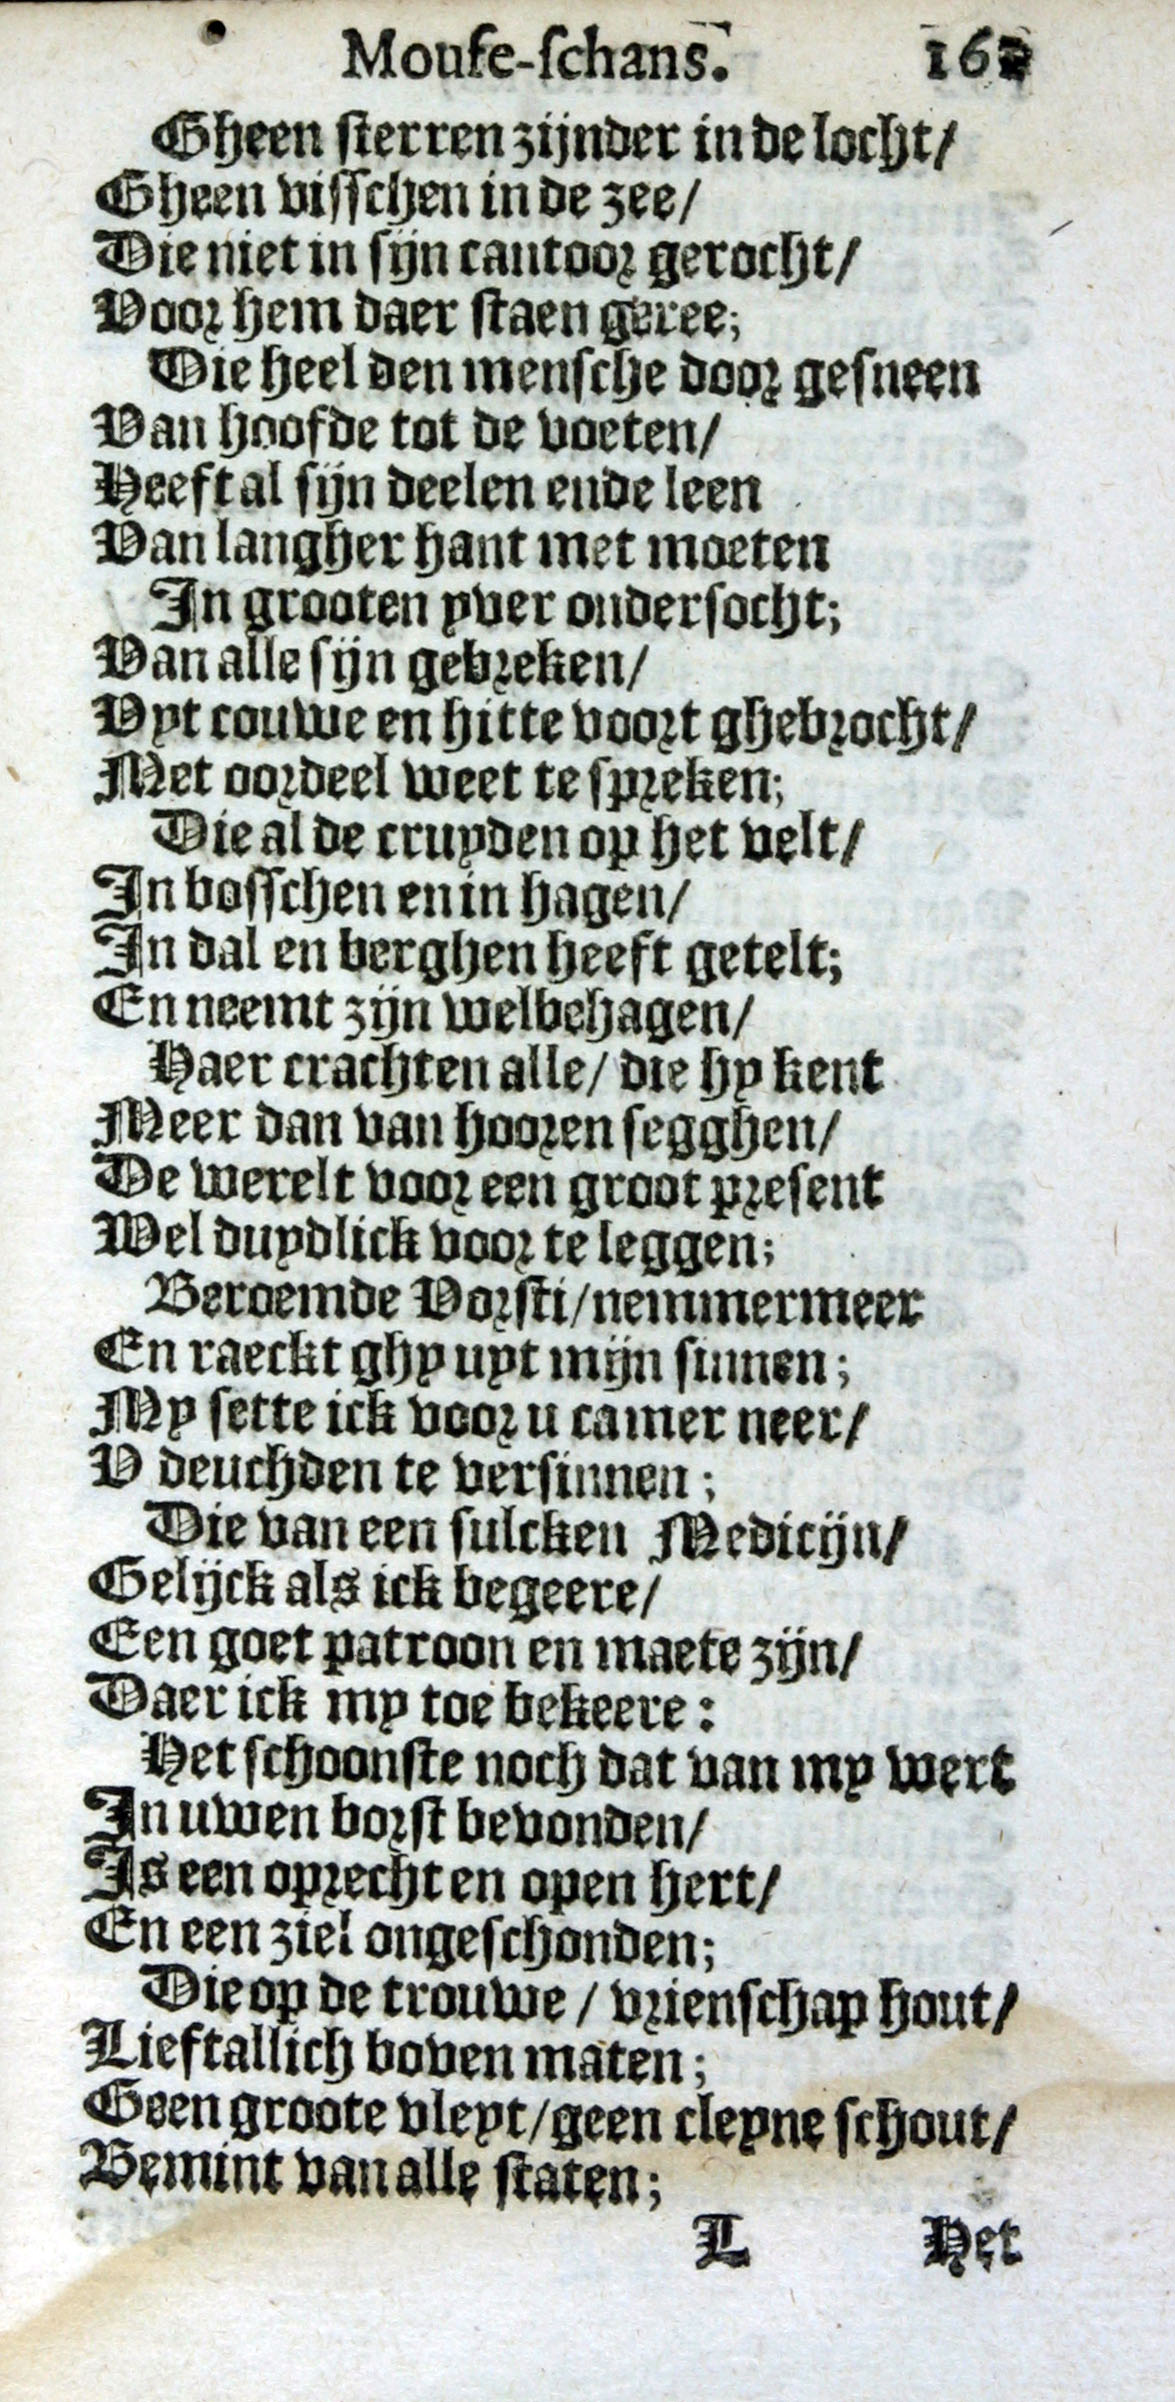 Mouſe-ſchans. 162
Gheen ſterren zijnder in de locht/
Gheen viſſchen in de zee/
Die niet in ſijn cantoor gerocht/
Voor hem daer ſtaen geree;
Die heel den menſche door geſneen
Van hoofde tot de voeten/
Heeft al ſijn deelen ende leen
Van langher hant met moeten
In grooten yver onderſocht;
Van alle ſijn gebreken/
Vyt couwe en hitte voort ghebrocht/
Met oordeel weet te ſpreken;
Die al de cruyden op het velt/
In boſſchen en in hagen/
In dal en berghen heeft getelt;
En neemt zijn welbehagen/
Haer crachten alle/ die hy kent
Meer dan van hooren ſegghen/
De werelt voor een groot preſent
Wel duydlick voor te leggen;
Beroemde Vorſti/nemmermeer
En raeckt ghy uyt mijn ſinnen;
My ſette ick voor u camer neer/
V deuchden te verſinnen;
Die van een ſulcken Medicijn/
Gelijck als ick begeere/
Een goet patroon en maete zijn/
Daer ick my toe bekeere:
Het ſchoonſte noch dat van my wert
In uwen borſt bevonden/
Is een oprecht en open hert/
En een ziel ongeſchonden;
Die op de trouwe / vrienſchap hout/
Lieftallich boven maten;
Geen groote vleyt/geen cleyne ſchout/
Bemint van alle ſtaten;
L Het